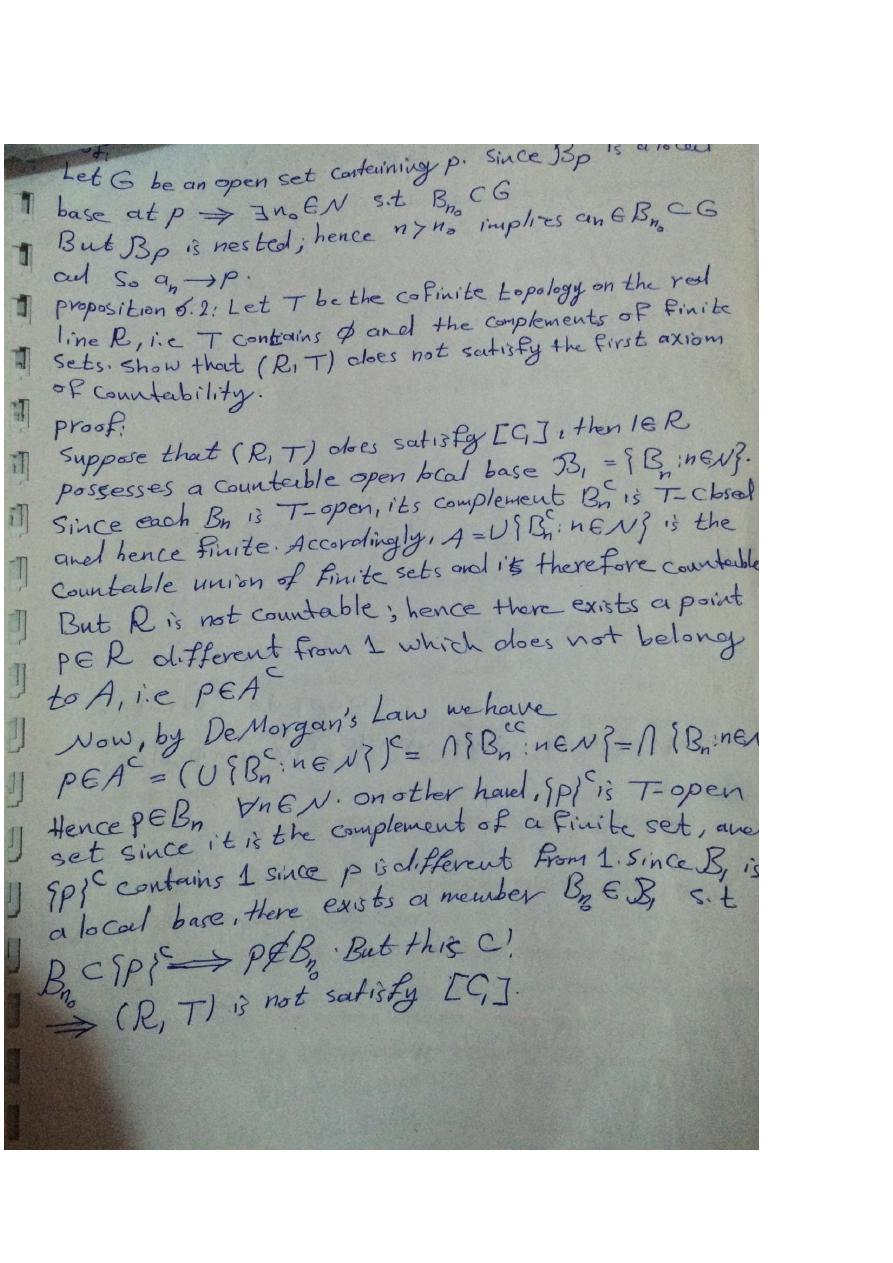 Let G be an open set containing p. Since 𝓑p is a local
base at p ⇒ ∃n₀∈N s.t B_n₀ ⊂ G
But 𝓑p is nested; hence n > n₀ implies an ∈ B_n₀ ⊂ G
and so a_n → p.
proposition 6.2: Let T be the cofinite topology on the real
line R, i.e T contains ∅ and the complements of finite
sets. show that (R, T) does not satisfy the first axiom
of countability.
proof:
Suppose that (R, T) does satisfy [C₁], then 1∈R
possesses a countable open local base 𝓑₁ = {B_n : n∈N}.
Since each Bn is T-open, its complement Bn^c is T-closed
and hence finite. Accordingly, A = ∪{Bn^c : n∈N} is the
countable union of finite sets and is therefore countable
But R is not countable; hence there exists a point
p∈R different from 1 which does not belong
to A, i.e p∈A^c
Now, by DeMorgan's Law we have
p∈A^c = (∪{Bn^c : n∈N})^c = ∩{Bn^cc : n∈N} = ∩{Bn : n∈N
Hence p∈Bn ∀n∈N. On other hand, {p}^c is T-open
set since it is the complement of a finite set, and
{p}^c contains 1 since p is different from 1. Since 𝓑₁ is
a local base, there exists a member B_n₀ ∈ 𝓑₁ s.t
B_n₀ ⊂ {p}^c ⇒ p∉B_n₀. But this C!
⇒ (R, T) is not satisfy [C₁].